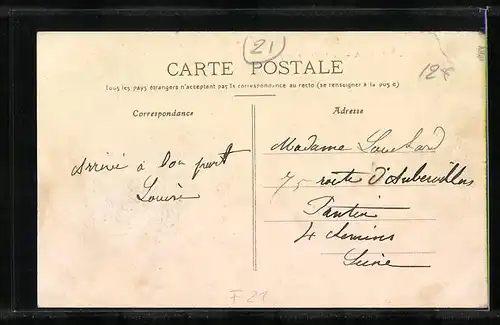 21
CARTE POSTALE
12€
Tous les pays étrangers n'acceptant pas la correspondance au recto (se renseigner à la poste)
Correspondance
Adresse
Arrivé à Bon port
Louise
Madame
75 route d'Aubervilliers
Pantin
4 chemins
Seine
F 21